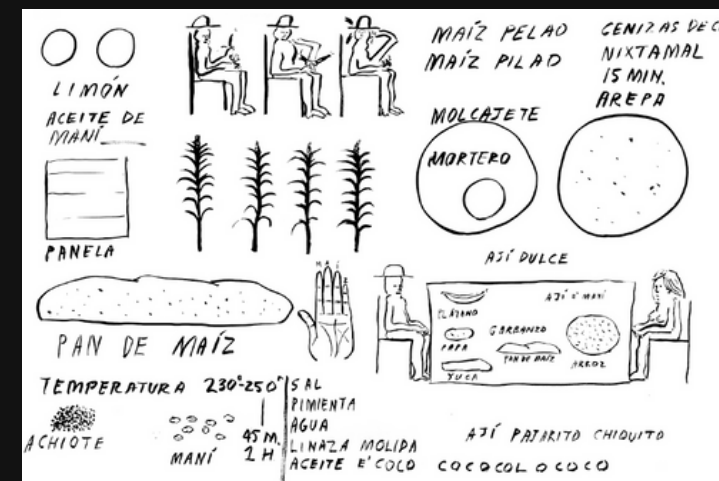 LIMÓN
ACEITE DE
MANÍ
PANELA
MAÍZ PELAO
MAÍZ PILAO
CENIZAS DE
NIXTAMAL
15 MIN.
AREPA
MOLCAJETE
MORTERO
PAN DE MAÍZ
AJÍ DULCE
PLÁTANO
PAPA
YUCA
GARBANZO
PAN DE MAÍZ
AJÍ E' MANÍ
ARROZ
TEMPERATURA 230°-250°
45 M.
1 H
ACHIOTE
MANÍ
SAL
PIMIENTA
AGUA
LINAZA MOLIDA
ACEITE E' COCO
AJÍ PAJARITO CHIQUITO
COCOCOLOCOCO